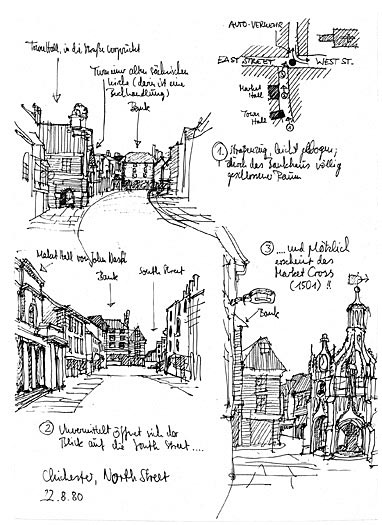 AUTO-VERKEHR
EAST STREET
WEST ST.
Market
Hall
Town
Hall
Town Hall, in die Straße vorgerückt
Turm einer alten sächsischen
Kirche (darin ist eine
Buchhandlung)
Bank
① Straßenzug, leicht gebogen;
durch das Bankhaus völlig
geschlossener Raum
Market Hall von John Nash
Bank
South Street
② Unvermittelt öffnet sich der
Blick auf die South Street ....
③ .... und plötzlich
erscheint das
Market Cross
(1501) !!
Bank
Chichester, North Street
22.8.80